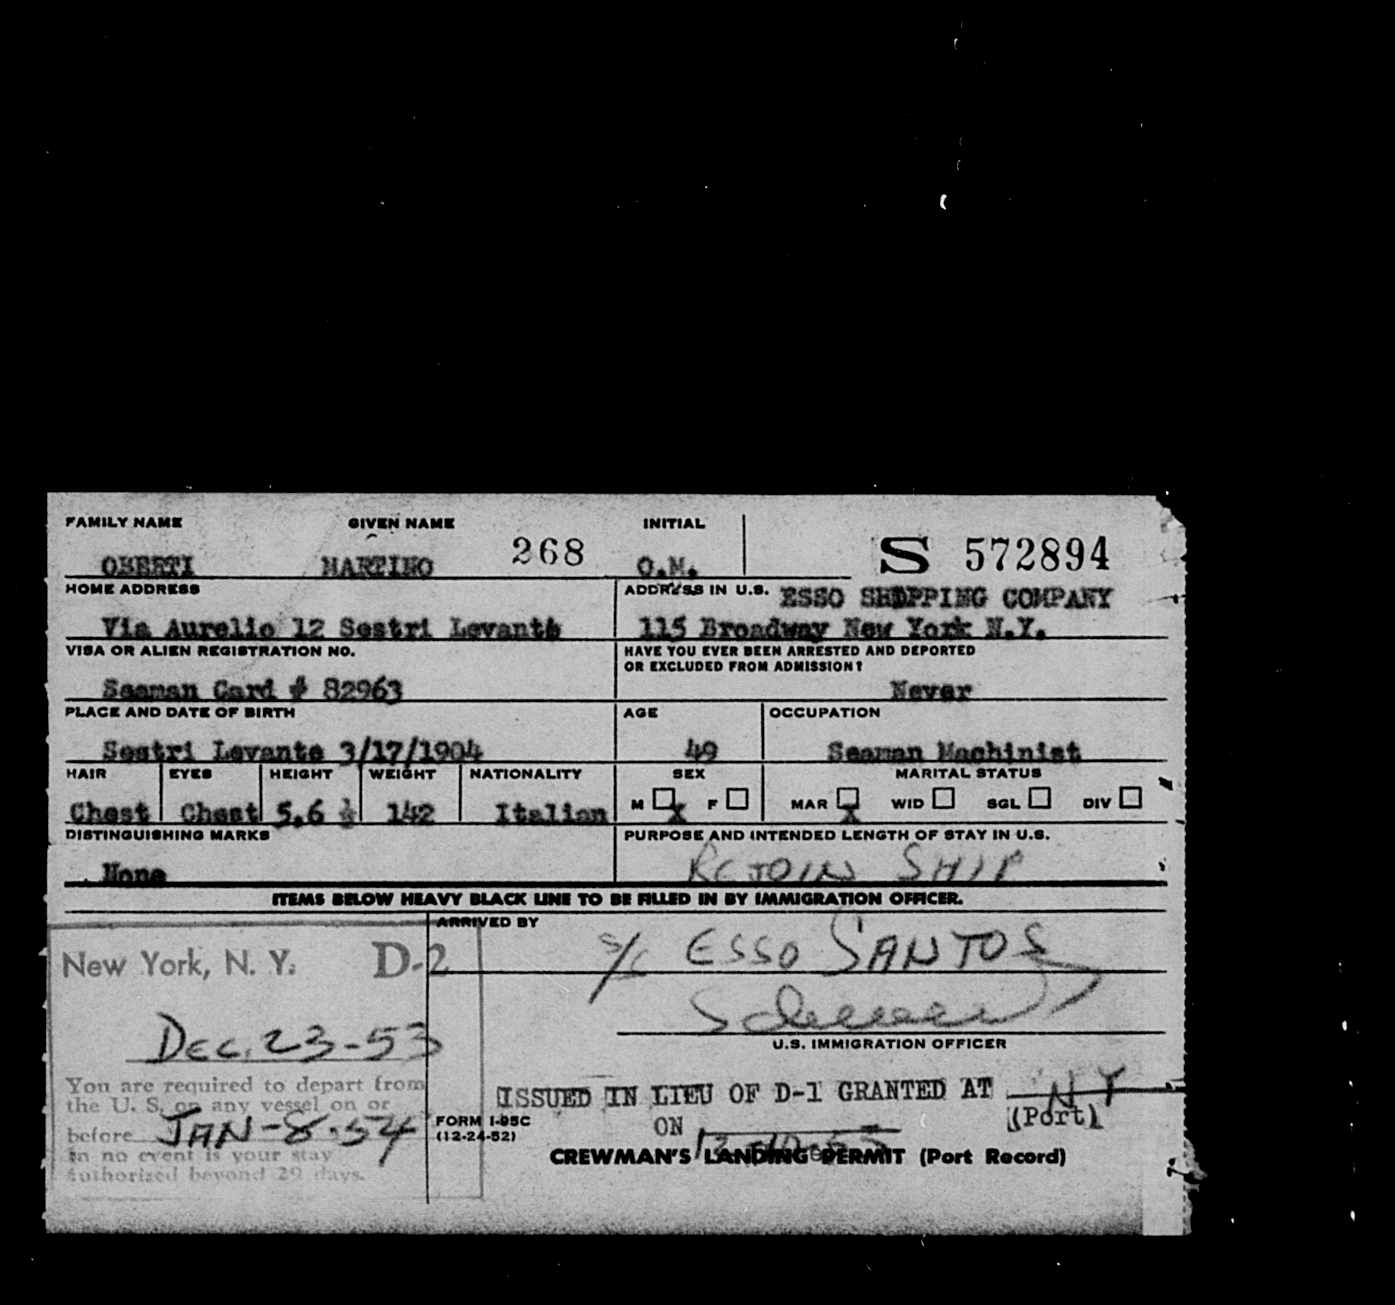 FAMILY NAME GIVEN NAME INITIAL
OBERTI MARTINO 268 O.M. S 572894
HOME ADDRESS ADDRESS IN U.S. ESSO SHIPPING COMPANY
Via Aurelio 12 Sestri Levante 115 Broadway New York N.Y.
VISA OR ALIEN REGISTRATION NO. HAVE YOU EVER BEEN ARRESTED AND DEPORTED
OR EXCLUDED FROM ADMISSION?
Seaman Card # 82963 Never
PLACE AND DATE OF BIRTH AGE OCCUPATION
Sestri Levante 3/17/1904 49 Seaman Machinist
HAIR EYES HEIGHT WEIGHT NATIONALITY SEX MARITAL STATUS
Chest Chest 5.6 ½ 142 Italian M X F MAR X WID SGL DIV
DISTINGUISHING MARKS PURPOSE AND INTENDED LENGTH OF STAY IN U.S.
None REJOIN SHIP
ITEMS BELOW HEAVY BLACK LINE TO BE FILLED IN BY IMMIGRATION OFFICER.
ARRIVED BY
New York, N. Y. D-2 S/S ESSO SANTOS
Dec. 23-53
U.S. IMMIGRATION OFFICER
You are required to depart from
the U. S. on any vessel on or
before JAN-8-54
In no event is your stay
authorized beyond 29 days.
ISSUED IN LIEU OF D-1 GRANTED AT NY
(Port)
FORM I-95C
(12-24-52)
ON
CREWMAN'S LANDING PERMIT (Port Record)